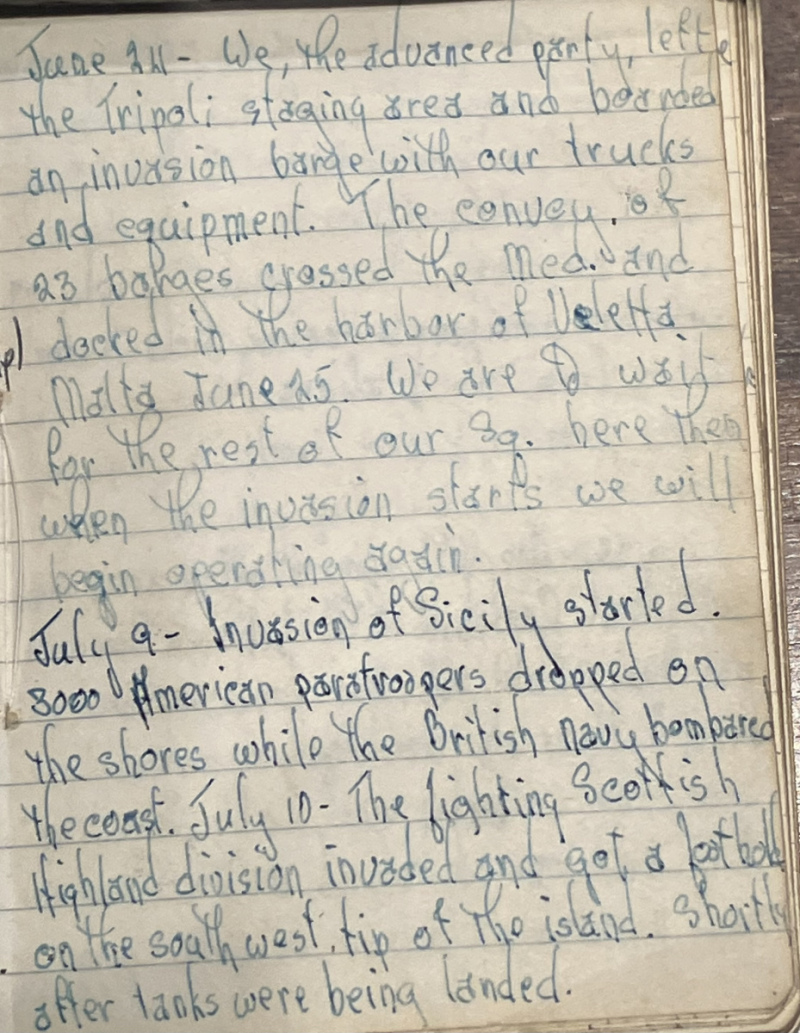 June 24 - We, the advanced party, left
the Tripoli staging area and boarded
an invasion barge with our trucks
and equipment. The convoy of
23 barges crossed the Med. and
docked in the harbor of Veletta
Malta June 25. We are to wait
for the rest of our Sq. here then
when the invasion starts we will
begin operating again.
July 9 - Invasion of Sicily started.
3000 American paratroopers dropped on
the shores while the British navy bombared
the coast. July 10 - The fighting Scottish
Highland division invaded and got a foothold
on the south west tip of the island. Shortly
after tanks were being landed.